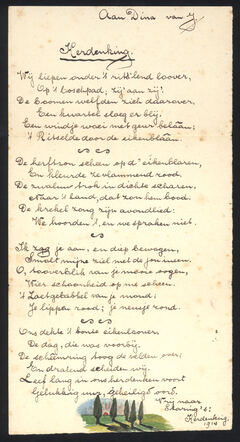 Aan Dina van IJ
Herdenking.
Wij liepen onder 't ritslend loover,
Op 't boschpad, zij aan zij.
De boomen welfden ziel daarover,
Een kwartel sloeg er blij.
Een windje woei met geur belaân;
't Ritselde door de eikenblâren.
De herfstzon scheen op d' eikenblaren,
En kleurde ze vlammend rood.
De zwaluw trok in dichte scharen,
Naar 't land, dat zon hen bood.
De krekel zong zijn avondlied:
We hoorden 't, en we spraken niet.
Ik zag je aan, en diep bewogen,
Smolt mijne ziel met de jou ineen.
O, tooverblik van je mooie oogen,
Wier schoonheid op me scheen.
't Zacht getabbel van je mond;
Je lippen rood; je neusje rond.
Ons dekte 't bonte eikenloover;
De dag, die was voorbij.
De schemering toog de velden over;
En dralend scheiden wij.
Leef lang in ons herdenken voort
Gelukkig uur, geheiligd oord.
Vrij naar
Herdenking.
1914